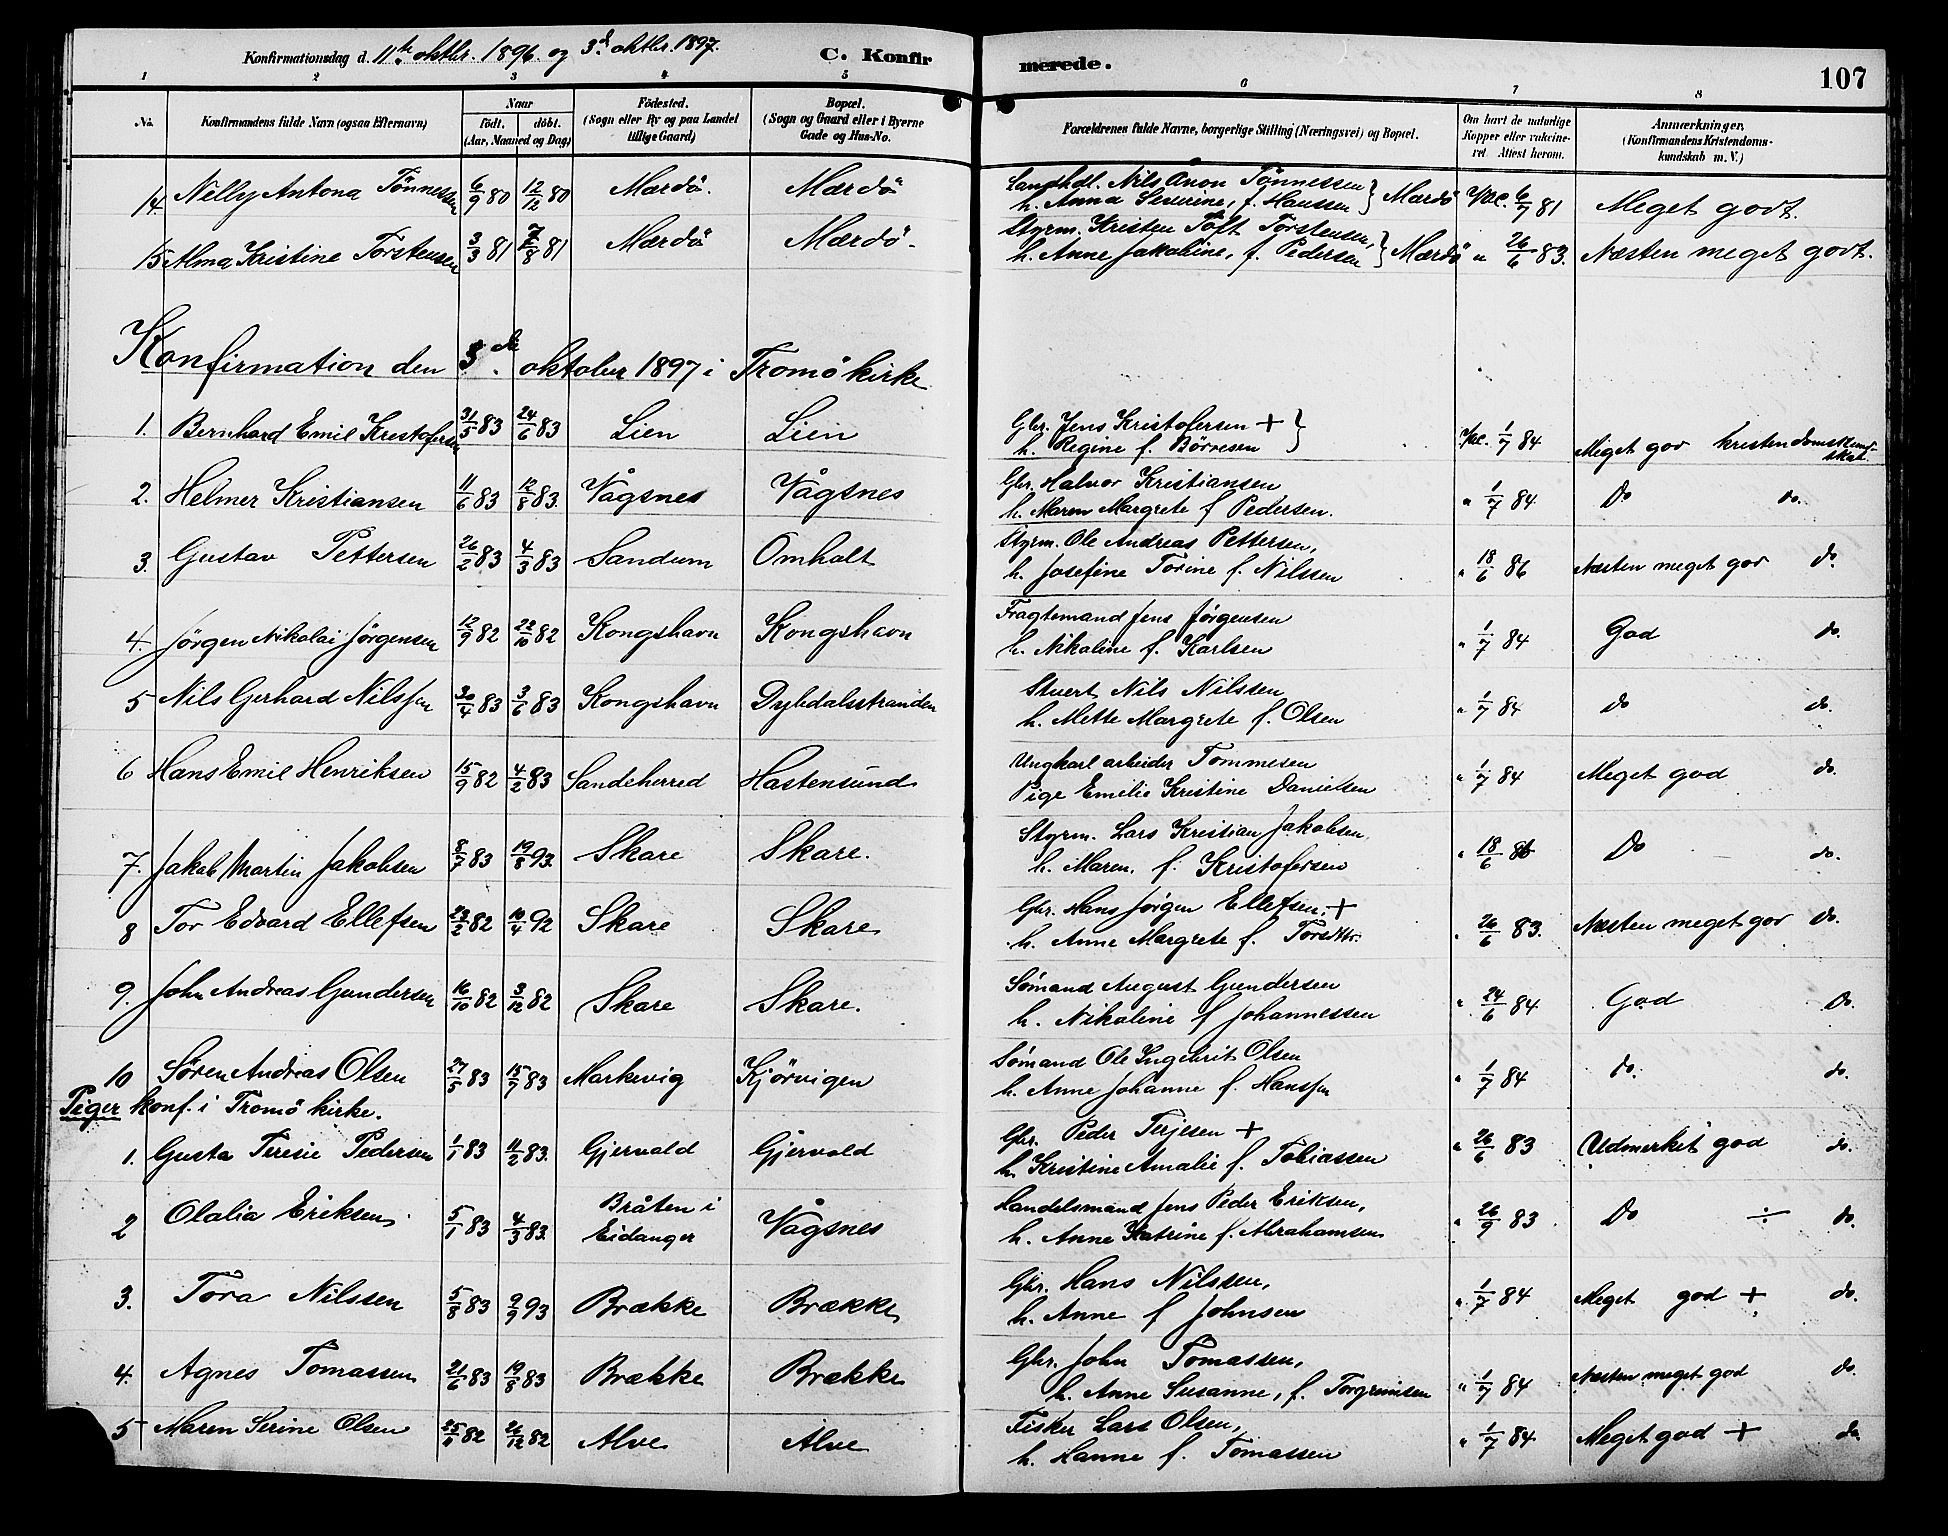 Konfirmationsdag d. 11te oktbr. 1896. og 3d oktbr. 1897. C. Konfirmerede. 107
1 2 3 4 5 6 7 8
No. Konfirmandens fulde Navn (ogsaa Efternavn) Naar födt. döbt. (Aar, Maaned og Dag) Födested. (Sogn eller By og paa Landet tillige Gaard) Bopæl. (Sogn og Gaard eller i Byerne Gade og Hus-No. Forældrenes fulde Navne, borgerlige Stilling (Næringsvei) og Bopæl. Om havt de naturlige Kopper eller vakcineret. Attest herom. Anmærkninger. (Konfirmandens Kristendomskundskab m. V.)
14. Nelly Antona Tönnessen 6/9 80 12/12 80 Mærdö. Mærdö Landhdl. Nils Anon Tönnessen
h. Anna Severine, f. Hanssen } Mærdö Vac. 6/7 81 Meget godt.
15 Alma Kristine Torstensen 3/3 81 7/8 81 Mærdö Mærdö. Styrm. Kristen Toft Torstensen,
h. Anne Jakobine, f. Pedersen } Mærdö " 26/6 83. Næsten meget godt.
Konfirmation den 3de oktober 1897 i Tromö kirke
1. Bernhard Emil Kristofersen 31/5 83 24/6 83 Lien Lien Gbr. Jens Kristofersen +
h. Regine f. Börresen } Vac. 1/7 84 Meget god kristendomskundskab
2. Helmer Kristiansen 11/6 83 12/8 83. Vågsnes Vågsnes Gbr. Halvor Kristiansen
h. Maren Margrete f Pedersen. " 1/7 84 Do do.
3. Gustav Pettersen 26/2 83 4/3 83 Sandum Omholt Styrm. Ole Andreas Pettersen,
h. Josefine Torine f. Nilssen " 18/6 86 Næsten meget god do.
4. Jörgen Nikolai Jörgensen 12/9 82 22/10 82 Kongshavn Kongshavn Fragtemand Jens Jørgensen
h. Nikoline f. Karlsen " 1/7 84 God do.
5 Nils Gerhard Nilssen 30/4 83 3/6 83 Kongshavn Dybdalsstranden Stuert Nils Nilssen
h. Mette Margrete f. Olsen " 1/7 84 do do.
6 Hans Emil Henriksen 15/9 82 4/2 83 Sandeherred Hastensund Ungkarl arbeider Tommesen
Pige Emilie Kristine Danielsen " 1/7 84 Meget god do.
7. Jakob Martin Jakobsen 8/7 83 19/8 93. Skare Skare. Styrm. Lars Kristian Jakobsen,
h. Maren, f. Kristofersen " 18/6 86 Do do.
8 Tor Edvard Ellefsen 23/2 82 10/4 92 Skare Skare Gbr. Hans Jørgen Ellefsen, +
h. Anne Margrete f. Torsdtr. " 26/6 83. Næsten meget god do.
9. John Andreas Gundersen 16/10 82 3/12 82 Skare Skare. Sømand August Gundersen
h. Nikoline f Johannessen " 24/6 84 God Do.
10 Søren Andreas Olsen 27/5 83 15/7 83 Markevig Kjörvigen Sømand Ole Ingebrit Olsen
h. Anne Johanne f. Hanssen " 1/7 84 do. do.
Piger konf. i Tromö kirke.
1. Gusta Teresie Pedersen 1/1 83 11/2 83. Gjervold Gjervold Gbr. Peder Terjesen +
h. Kristine Amalie f. Tobiassen " 26/6 83 Udmerket god do.
2 Olalia Eriksen 5/1 83 4/3 83. Bråten i Eidanger Vågsnes Handelsmand Jens Peder Eriksen,
h. Anne Katrine f. Abrahamsen " 26/9 83 Do ÷ do.
3. Tora Nilssen 5/8 83 9/9 93 Brække Brække Gbr. Hans Nilssen,
h. Anne f Johnsen " 1/7 84 Meget god + do.
4. Agnes Tomassen 21/6 83 19/8 83 Brække Brække Gbr. John Tomassen,
h. Anne Susanne, f. Torgrimsen " 1/7 84 Næsten meget god do.
5 Maren Serine Olsen 82 26/12 82 Alve Alve Fisker Lars Olsen,
h. Hanne f. Tomassen " 1/7 84 Meget god + do